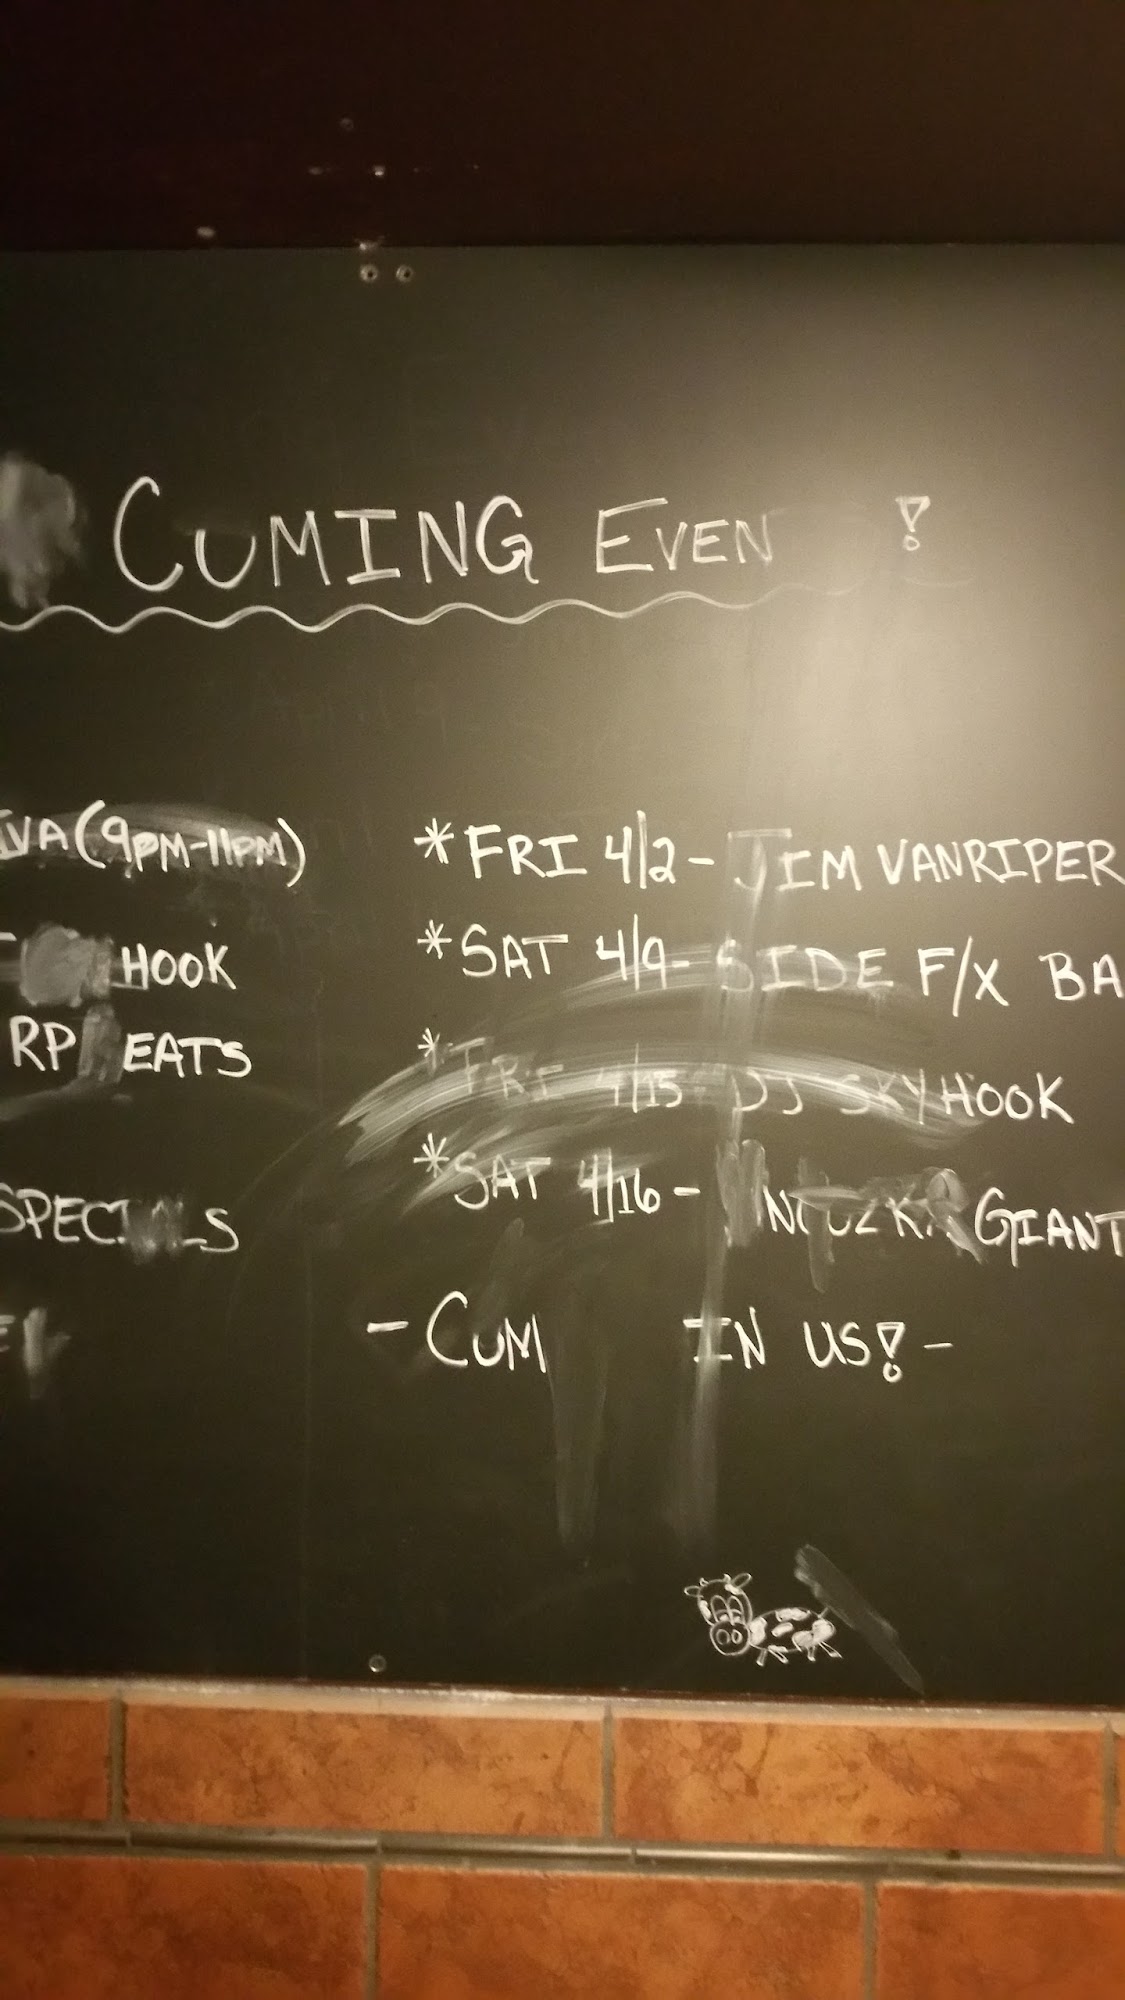 CUMING EVEN !
IVA (9PM-11PM)
HOOK
RP EATS
SPECIALS
*FRI 4/2- JIM VANRIPER
*SAT 4/9- SIDE F/X BA
*FRI 4/15- DJ SKYHOOK
*SAT 4/16- GIANT
- CUM IN US! -